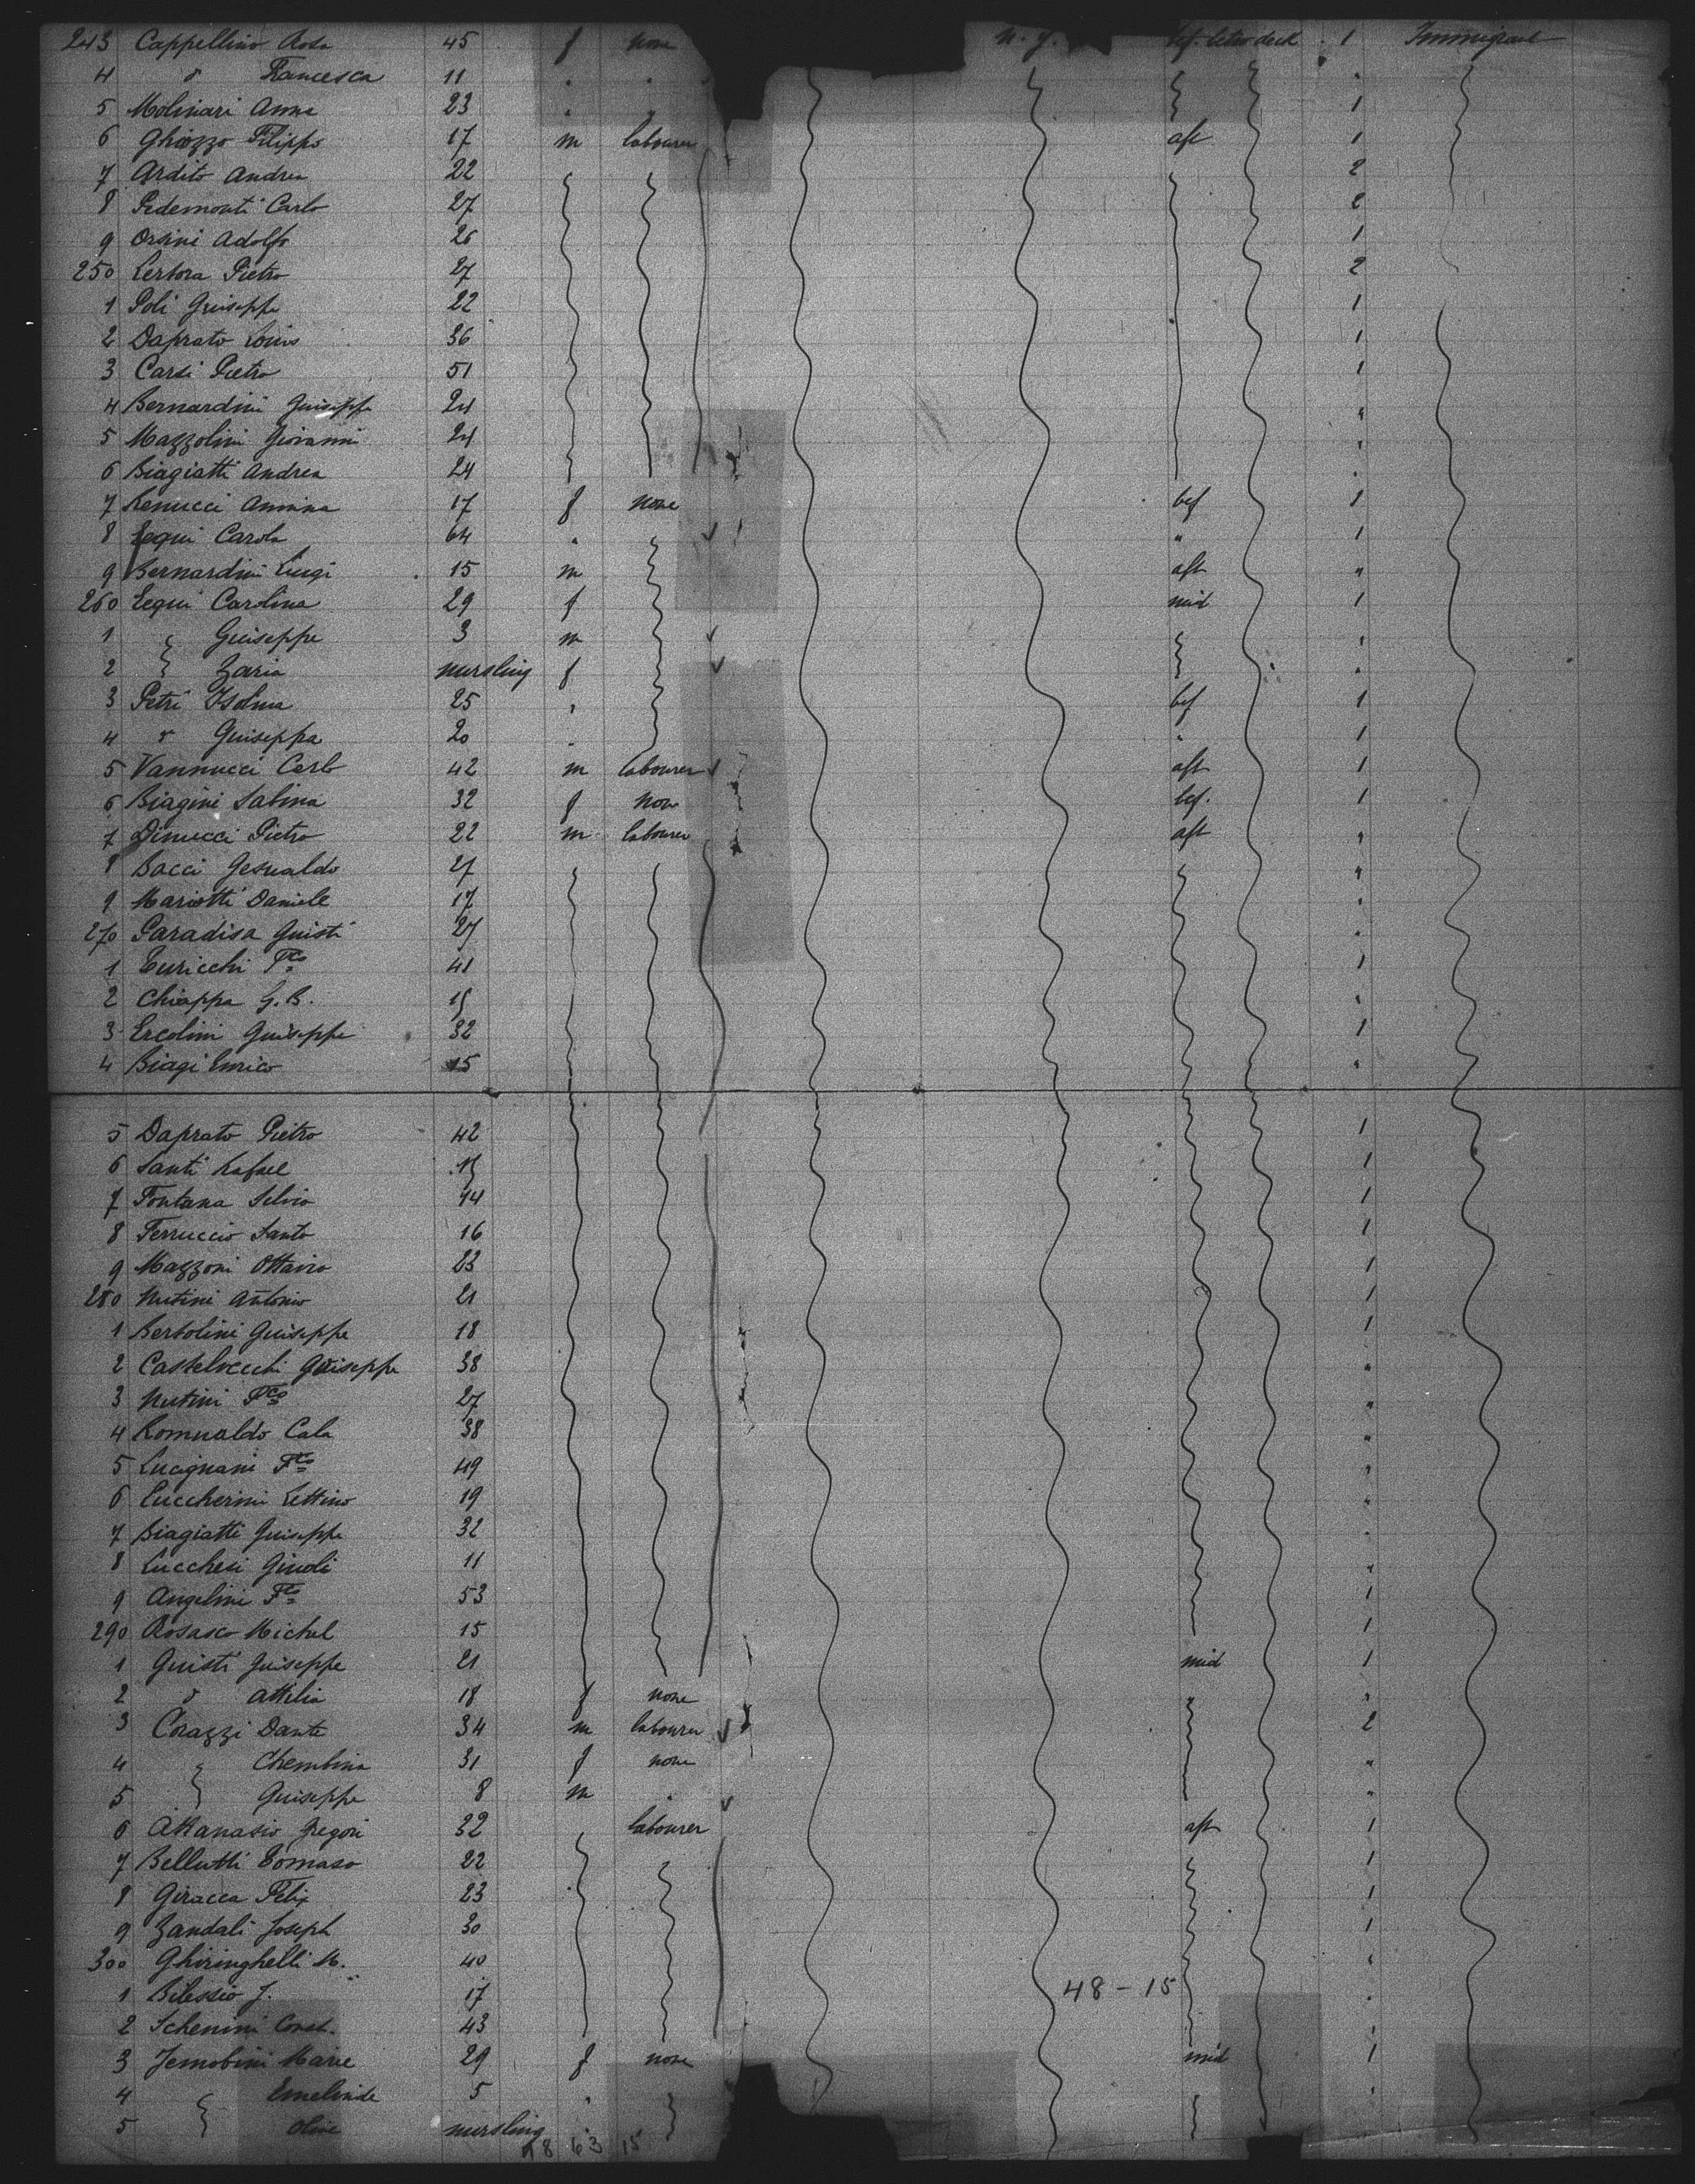 243 Cappellino Rosa 45 f none N. Y. bef. betw deck 1 Immigrant
4 " Francesca 11 " "
5 Molinari Anna 23 " " 1
6 Ghiozzo Filippo 17 m labourer aft 1
7 Ardito Andrea 22 2
8 Pedemonti Carlo 27 2
9 Orsini Adolfo 26 1
250 Lertora Pietro 27 2
1 Poli Guiseppe 22 1
2 Daprato Louis 36 1
3 Carsi Pietro 51 1
4 Bernardini Guiseppe 24 "
5 Mazzolini Giovanni 24 "
6 Biagiatti Andrea 24 "
7 Renucci Annina 17 f none bef 1
8 Lequi Carola 64 " " 1
9 Bernardini Luigi 15 m aft "
260 Lequi Carolina 29 f mid 1
1 Guiseppe 3 m "
2 Zaria nursling f "
3 Petri Isolina 25 " bef 1
4 " Guiseppa 20 " " 1
5 Vannucci Carlo 42 m labourer aft 1
6 Biagini Sabina 32 f none bef. 1
7 Dinucci Pietro 22 m labourer aft "
8 Bacci Gesualdo 27 "
9 Mariotti Daniele 17 "
270 Paradisa Guisti 27 "
1 Turicchi Fco 41 1
2 Chiappa G. B. 15 "
3 Ercolini Guiseppe 32 1
4 Biagi Enrico 15 "
5 Daprato Pietro 42 1
6 Santi Rafael 15 1
7 Fontana Silvio 44 1
8 Ferruccio Santo 16 1
9 Mazzoni Ottavio 23 1
280 Nutini Antonio 21 1
1 Bertolini Guiseppe 18 1
2 Castelvecchi Guiseppe 38 "
3 Nutini Fco 27 "
4 Romualdo Cala 38 "
5 Lucignani Fco 49 "
6 Luccherini Settino 19 "
7 Biagiatti Guiseppe 32 "
8 Lucchesi Giudi 11 "
9 Angelini Fco 53 1
290 Rosasco Michel 15 1
1 Guisti Guiseppe 21 mid 1
2 " Attilia 18 f none "
3 Corazzi Dante 34 m labourer 2
4 Cherubina 31 f none "
5 Guiseppe 8 m " "
6 Attanasio Gregori 32 labourer aft 1
7 Bellutti Tomaso 22 1
8 Giracca Felix 23 1
9 Zandali Joseph 30 1
300 Ghiringhelli M. 40 "
1 Bilessio J. 17 48-15 "
2 Schenini Const. 43 "
3 Jemobini Marie 29 f none mid 1
4 Emelinde 5 " "
5 Olive nursling "
48 63 15